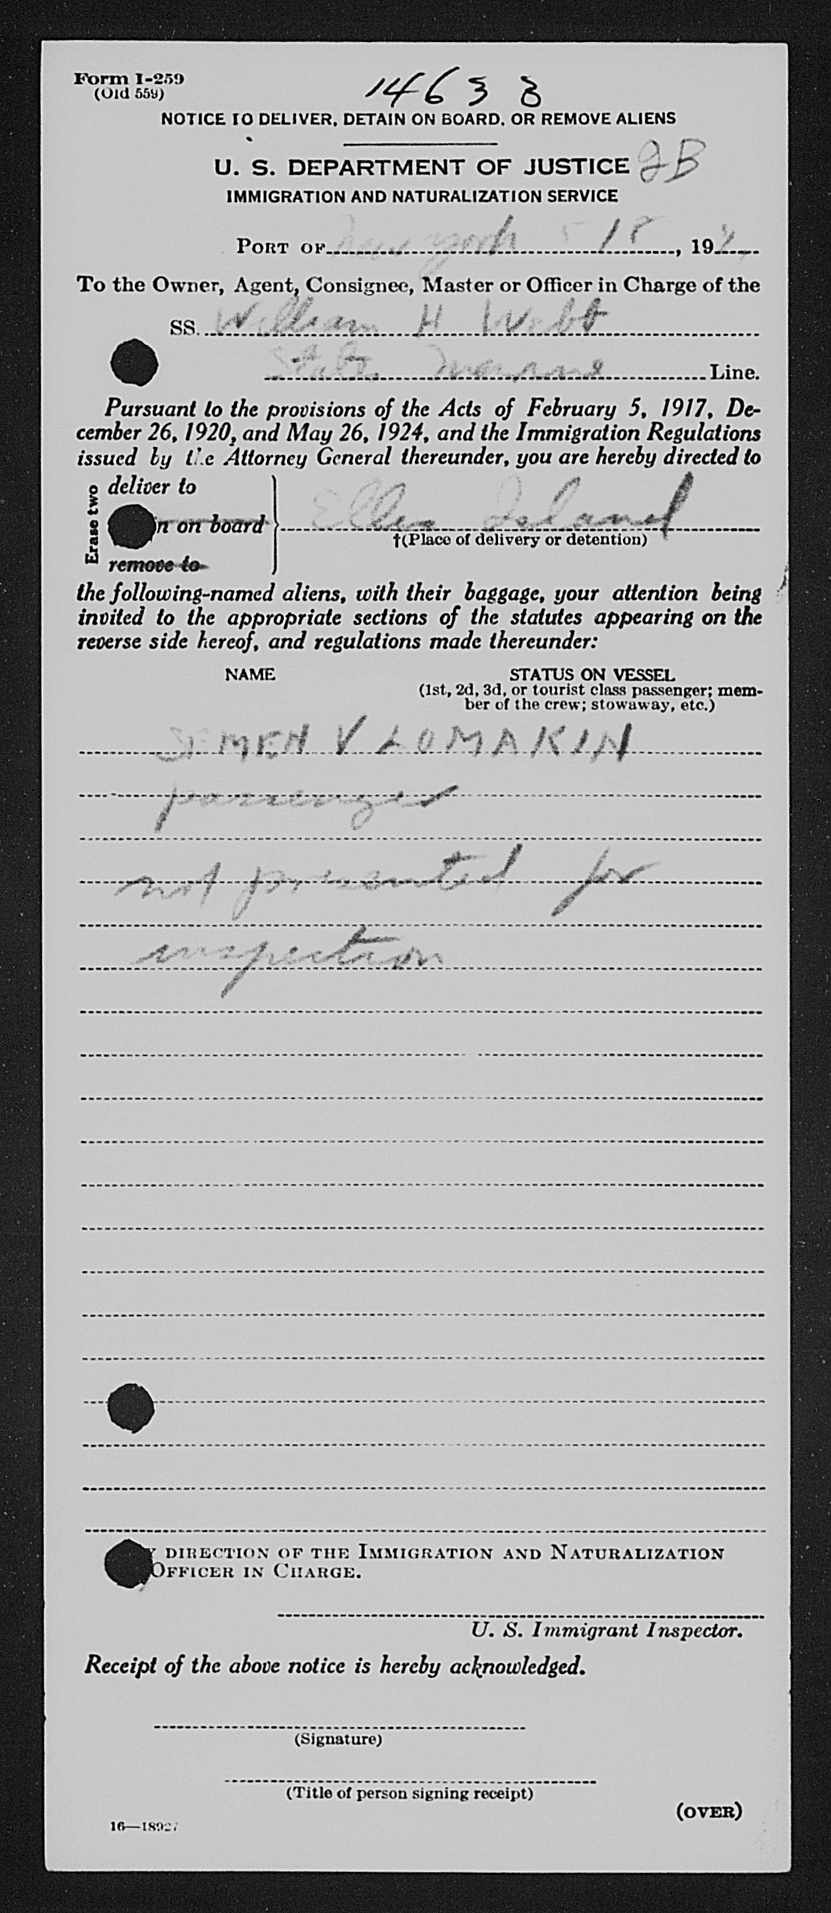 Form I-259
(Old 559)
14633
NOTICE TO DELIVER, DETAIN ON BOARD, OR REMOVE ALIENS
U. S. DEPARTMENT OF JUSTICE JB
IMMIGRATION AND NATURALIZATION SERVICE
PORT OF New York 18, 194
To the Owner, Agent, Consignee, Master or Officer in Charge of the
SS. William H Webb
States Marine Line.
Pursuant to the provisions of the Acts of February 5, 1917, De-
cember 26, 1920, and May 26, 1924, and the Immigration Regulations
issued by the Attorney General thereunder, you are hereby directed to
Erase two
deliver to
n on board Ellis Island
†(Place of delivery or detention)
remove to
the following-named aliens, with their baggage, your attention being
invited to the appropriate sections of the statutes appearing on the
reverse side hereof, and regulations made thereunder:
NAME STATUS ON VESSEL
(1st, 2d, 3d, or tourist class passenger; mem-
ber of the crew; stowaway, etc.)
SEMEN V LOMAKIN
passenger
not presented for
inspection
Y DIRECTION OF THE IMMIGRATION AND NATURALIZATION
OFFICER IN CHARGE.
U. S. Immigrant Inspector.
Receipt of the above notice is hereby acknowledged.
(Signature)
(Title of person signing receipt)
(OVER)
16—18927